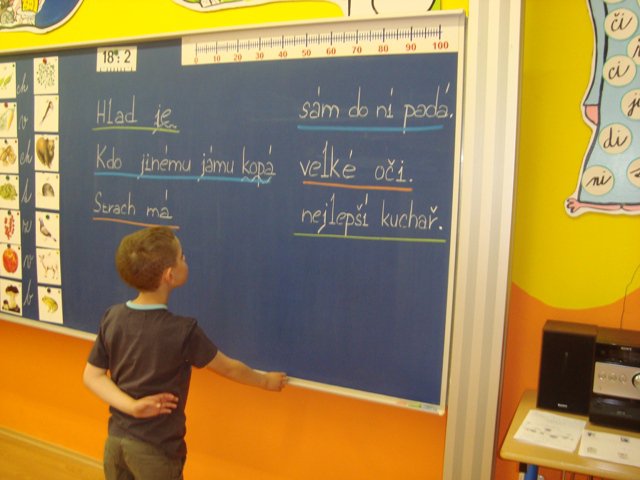 18 : 2
0 10 20 30 40 50 60 70 80 90 100
Hlad je
sám do ní padá.
Kdo jinému jámu kopá
velké oči.
Strach má
nejlepší kuchař.
ch
v
ch
h
v
b
či
ci
di
ni
SONY